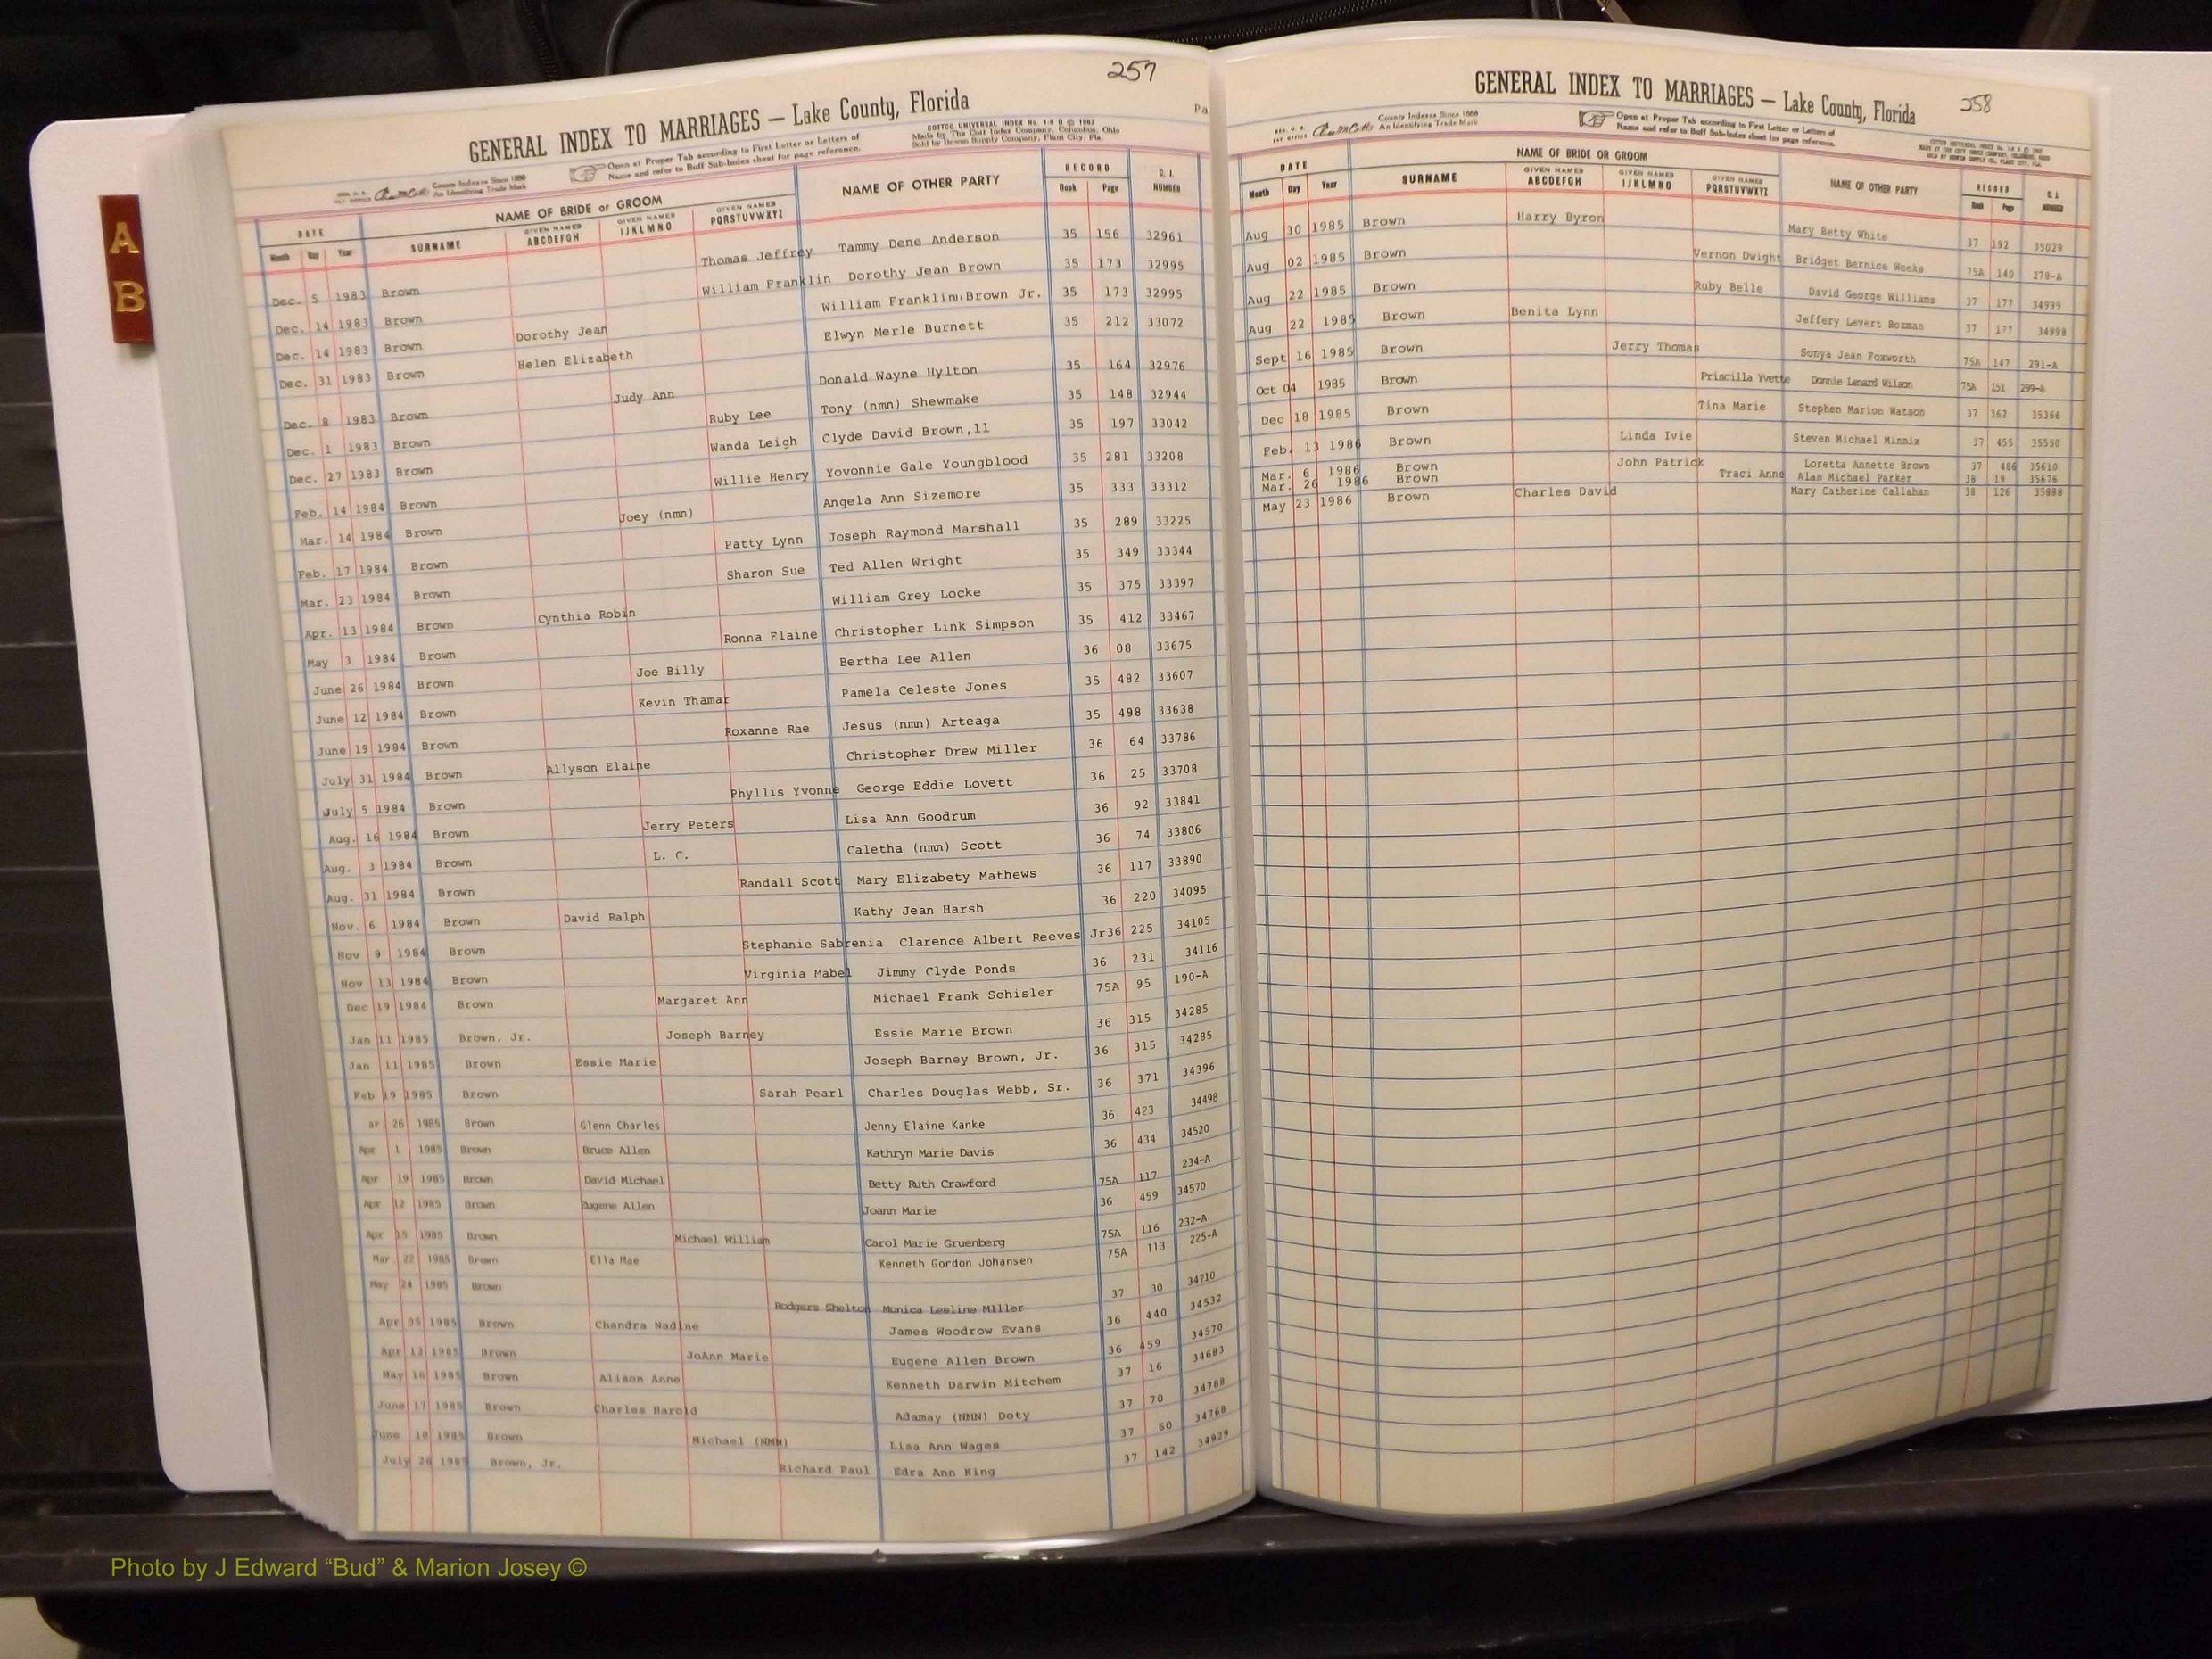 A
B
257
GENERAL INDEX TO MARRIAGES — Lake County, Florida
County Indexes Since 1888
An Identifying Trade Mark
Open at Proper Tab according to First Letter or Letters of
Name and refer to Buff Sub-Index sheet for page reference.
COTTCO UNIVERSAL INDEX No. 1-8 D © 1983
Made by The Cott Index Company, Columbus, Ohio
Sold by Bowen Supply Company, Plant City, Fla.
Pa
DATE NAME OF BRIDE or GROOM NAME OF OTHER PARTY RECORD C. I.
Month Day Year SURNAME GIVEN NAMES ABCDEFGH GIVEN NAMES IJKLMNO GIVEN NAMES PQRSTUVWXYZ Book Page NUMBER
Dec. 5 1983 Brown Thomas Jeffrey Tammy Dene Anderson 35 156 32961
Dec. 14 1983 Brown William Franklin Dorothy Jean Brown 35 173 32995
Dec. 14 1983 Brown Dorothy Jean William Franklin Brown Jr. 35 173 32995
Dec. 31 1983 Brown Helen Elizabeth Elwyn Merle Burnett 35 212 33072
Dec. 8 1983 Brown Judy Ann Donald Wayne Hylton 35 164 32976
Dec. 1 1983 Brown Ruby Lee Tony (nmn) Shewmake 35 148 32944
Dec. 27 1983 Brown Wanda Leigh Clyde David Brown,11 35 197 33042
Feb. 14 1984 Brown Willie Henry Yovonnie Gale Youngblood 35 281 33208
Mar. 14 1984 Brown Joey (nmn) Angela Ann Sizemore 35 333 33312
Feb. 17 1984 Brown Patty Lynn Joseph Raymond Marshall 35 289 33225
Mar. 23 1984 Brown Sharon Sue Ted Allen Wright 35 349 33344
Apr. 13 1984 Brown Cynthia Robin William Grey Locke 35 375 33397
May 3 1984 Brown Ronna Flaine Christopher Link Simpson 35 412 33467
June 26 1984 Brown Joe Billy Bertha Lee Allen 36 08 33675
June 12 1984 Brown Kevin Thamar Pamela Celeste Jones 35 482 33607
June 19 1984 Brown Roxanne Rae Jesus (nmn) Arteaga 35 498 33638
July 31 1984 Brown Allyson Elaine Christopher Drew Miller 36 64 33786
July 5 1984 Brown Phyllis Yvonne George Eddie Lovett 36 25 33708
Aug. 16 1984 Brown Jerry Peters Lisa Ann Goodrum 36 92 33841
Aug. 3 1984 Brown L. C. Caletha (nmn) Scott 36 74 33806
Aug. 31 1984 Brown Randall Scott Mary Elizabety Mathews 36 117 33890
Nov. 6 1984 Brown David Ralph Kathy Jean Harsh 36 220 34095
Nov 9 1984 Brown Stephanie Sabrenia Clarence Albert Reeves Jr36 225 34105
Nov 13 1984 Brown Virginia Mabel Jimmy Clyde Ponds 36 231 34116
Dec 19 1984 Brown Margaret Ann Michael Frank Schisler 75A 95 190-A
Jan 11 1985 Brown, Jr. Joseph Barney Essie Marie Brown 36 315 34285
Jan 11 1985 Brown Essie Marie Joseph Barney Brown, Jr. 36 315 34285
Feb 19 1985 Brown Sarah Pearl Charles Douglas Webb, Sr. 36 371 34396
ar 26 1985 Brown Glenn Charles Jenny Elaine Kanke 36 423 34498
Apr 1 1985 Brown Bruce Allen Kathryn Marie Davis 36 434 34520
Apr 19 1985 Brown David Michael Betty Ruth Crawford 75A 117 234-A
Apr 12 1985 Brown Eugene Allen Joann Marie 36 459 34570
Apr 15 1985 Brown Michael William Carol Marie Gruenberg 75A 116 232-A
Mar 22 1985 Brown Ella Mae Kenneth Gordon Johansen 75A 113 225-A
May 24 1985 Brown Rodgers Shelton Monica Lesline MIller 37 30 34710
Apr 05 1985 Brown Chandra Nadine James Woodrow Evans 36 440 34532
Apr 12 1985 Brown JoAnn Marie Eugene Allen Brown 36 459 34570
May 16 1985 Brown Alison Anne Kenneth Darwin Mitchem 37 16 34683
June 17 1985 Brown Charles Harold Adamay (NMN) Doty 37 70 34788
June 10 1985 Brown Michael (NMN) Lisa Ann Wages 37 60 34768
July 26 1985 Brown, Jr. Richard Paul Edra Ann King 37 142 34929
GENERAL INDEX TO MARRIAGES — Lake County, Florida
258
County Indexes Since 1888
An Identifying Trade Mark
Open at Proper Tab according to First Letter or Letters of
Name and refer to Buff Sub-Index sheet for page reference.
DATE NAME OF BRIDE OR GROOM NAME OF OTHER PARTY RECORD C. I.
Month Day Year SURNAME GIVEN NAMES ABCDEFGH GIVEN NAMES IJKLMNO GIVEN NAMES PQRSTUVWXYZ Book Page NUMBER
Aug 30 1985 Brown Harry Byron Mary Betty White 37 192 35029
Aug 02 1985 Brown Vernon Dwight Bridget Bernice Weeks 75A 140 278-A
Aug 22 1985 Brown Ruby Belle David George Williams 37 177 34999
Aug 22 1985 Brown Benita Lynn Jeffery Levert Bozman 37 177 34998
Sept 16 1985 Brown Jerry Thomas Sonya Jean Foxworth 75A 147 291-A
Oct 04 1985 Brown Priscilla Yvette Donnie Lenard Wilson 75A 151 299-A
Dec 18 1985 Brown Tina Marie Stephen Marion Watson 37 362 35366
Feb. 13 1986 Brown Linda Ivie Steven Michael Minnix 37 455 35550
Mar. 6 1986 Brown John Patrick Loretta Annette Brown 37 486 35610
Mar. 26 1986 Brown Traci Anne Alan Michael Parker 38 19 35676
May 23 1986 Brown Charles David Mary Catherine Callahan 38 126 35888
Photo by J Edward “Bud” & Marion Josey ©